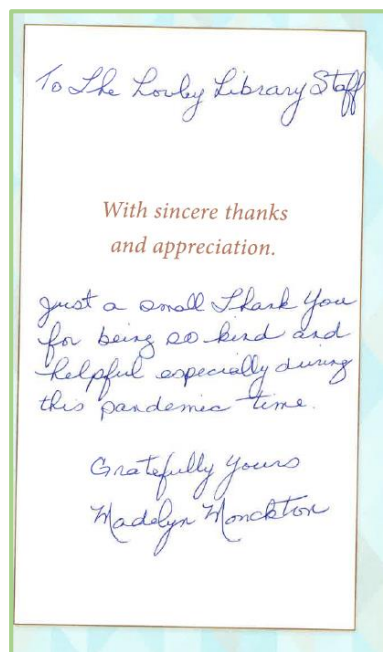 To The Lovley Library Staff
With sincere thanks
and appreciation.
Just a small Thank You
for being so kind and
helpful especially during
this pandemic time.
Gratefully Yours
Madelyn Monckton